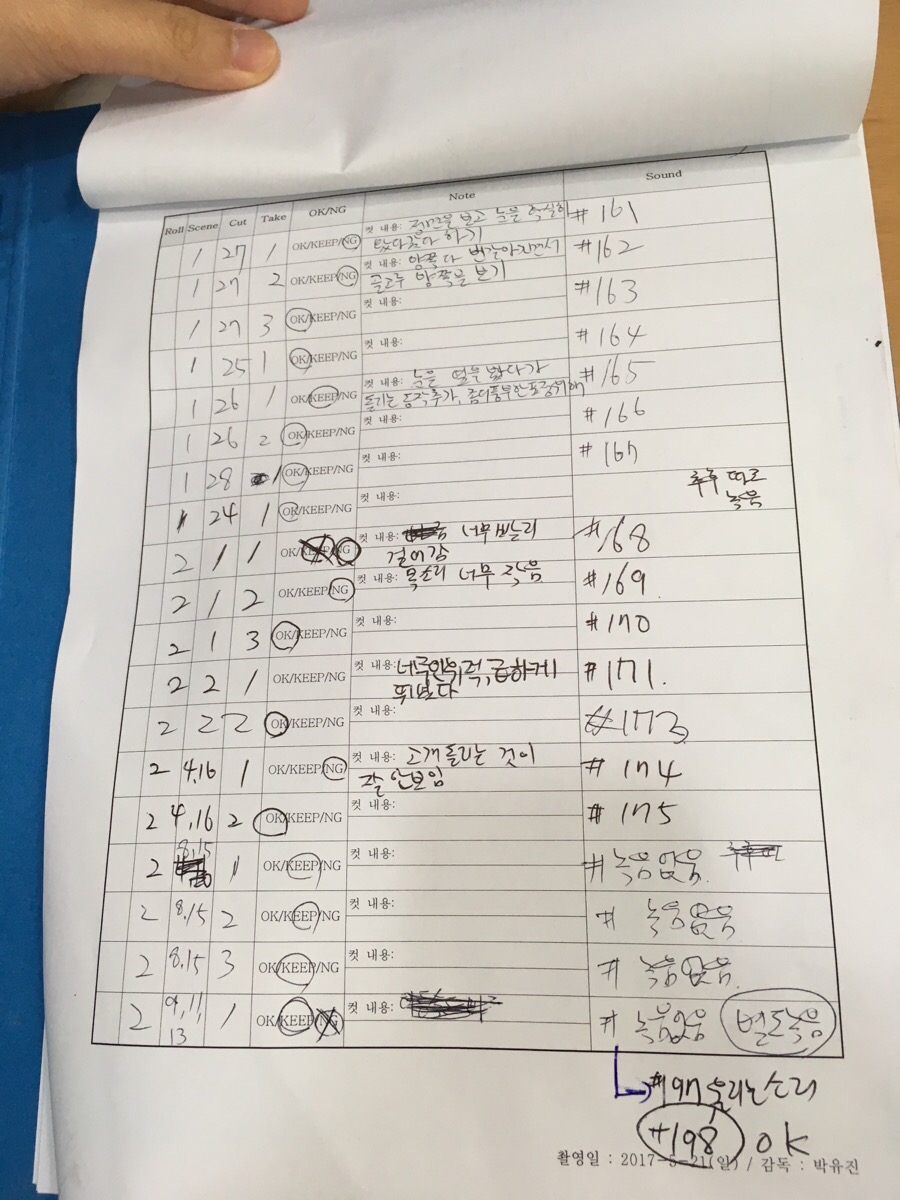 Roll Scene Cut Take OK/NG Note Sound
1 27 1 OK/KEEP/NG 컷 내용: 보고 눈을 확실히 #161
하기
1 27 2 OK/KEEP/NG 컷 내용: 양쪽 다 번갈아가면서 #162
골고루 양쪽을 보기
1 27 3 OK/KEEP/NG 컷 내용: #163
1 25 1 OK/KEEP/NG 컷 내용: #164
1 26 1 OK/KEEP/NG 컷 내용: 눈을 봤다가 #165
돌리는 동작 추가, 좀더 풍부한 표정위해
1 26 2 OK/KEEP/NG 컷 내용: #166
1 28 1 OK/KEEP/NG 컷 내용: #167
1 24 1 OK/KEEP/NG 컷 내용: 추후 따로
녹음
2 1 1 OK/KEEP/NG 컷 내용: 너무 빨리 #168
걸어감
2 1 2 OK/KEEP/NG 컷 내용: 목소리 너무 작음 #169
2 1 3 OK/KEEP/NG 컷 내용: #170
2 2 1 OK/KEEP/NG 컷 내용: 너무 인위적, 급하게 #171.
뛰었다
2 2 2 OK/KEEP/NG 컷 내용: #173
2 4,16 1 OK/KEEP/NG 컷 내용: 고개 돌리는 것이 #174
잘 안보임
2 4,16 2 OK/KEEP/NG 컷 내용: #175
2 8,15 1 OK/KEEP/NG 컷 내용: # 녹음없음.
2 8,15 2 OK/KEEP/NG 컷 내용: # 녹음없음
2 8,15 3 OK/KEEP/NG 컷 내용: # 녹음없음.
2 9,11, 1 OK/KEEP/NG 컷 내용: # 녹음없음 별도녹음
13
#197 울리는소리
#198 OK
촬영일 : 2017-5-21(일) / 감독 : 박유진